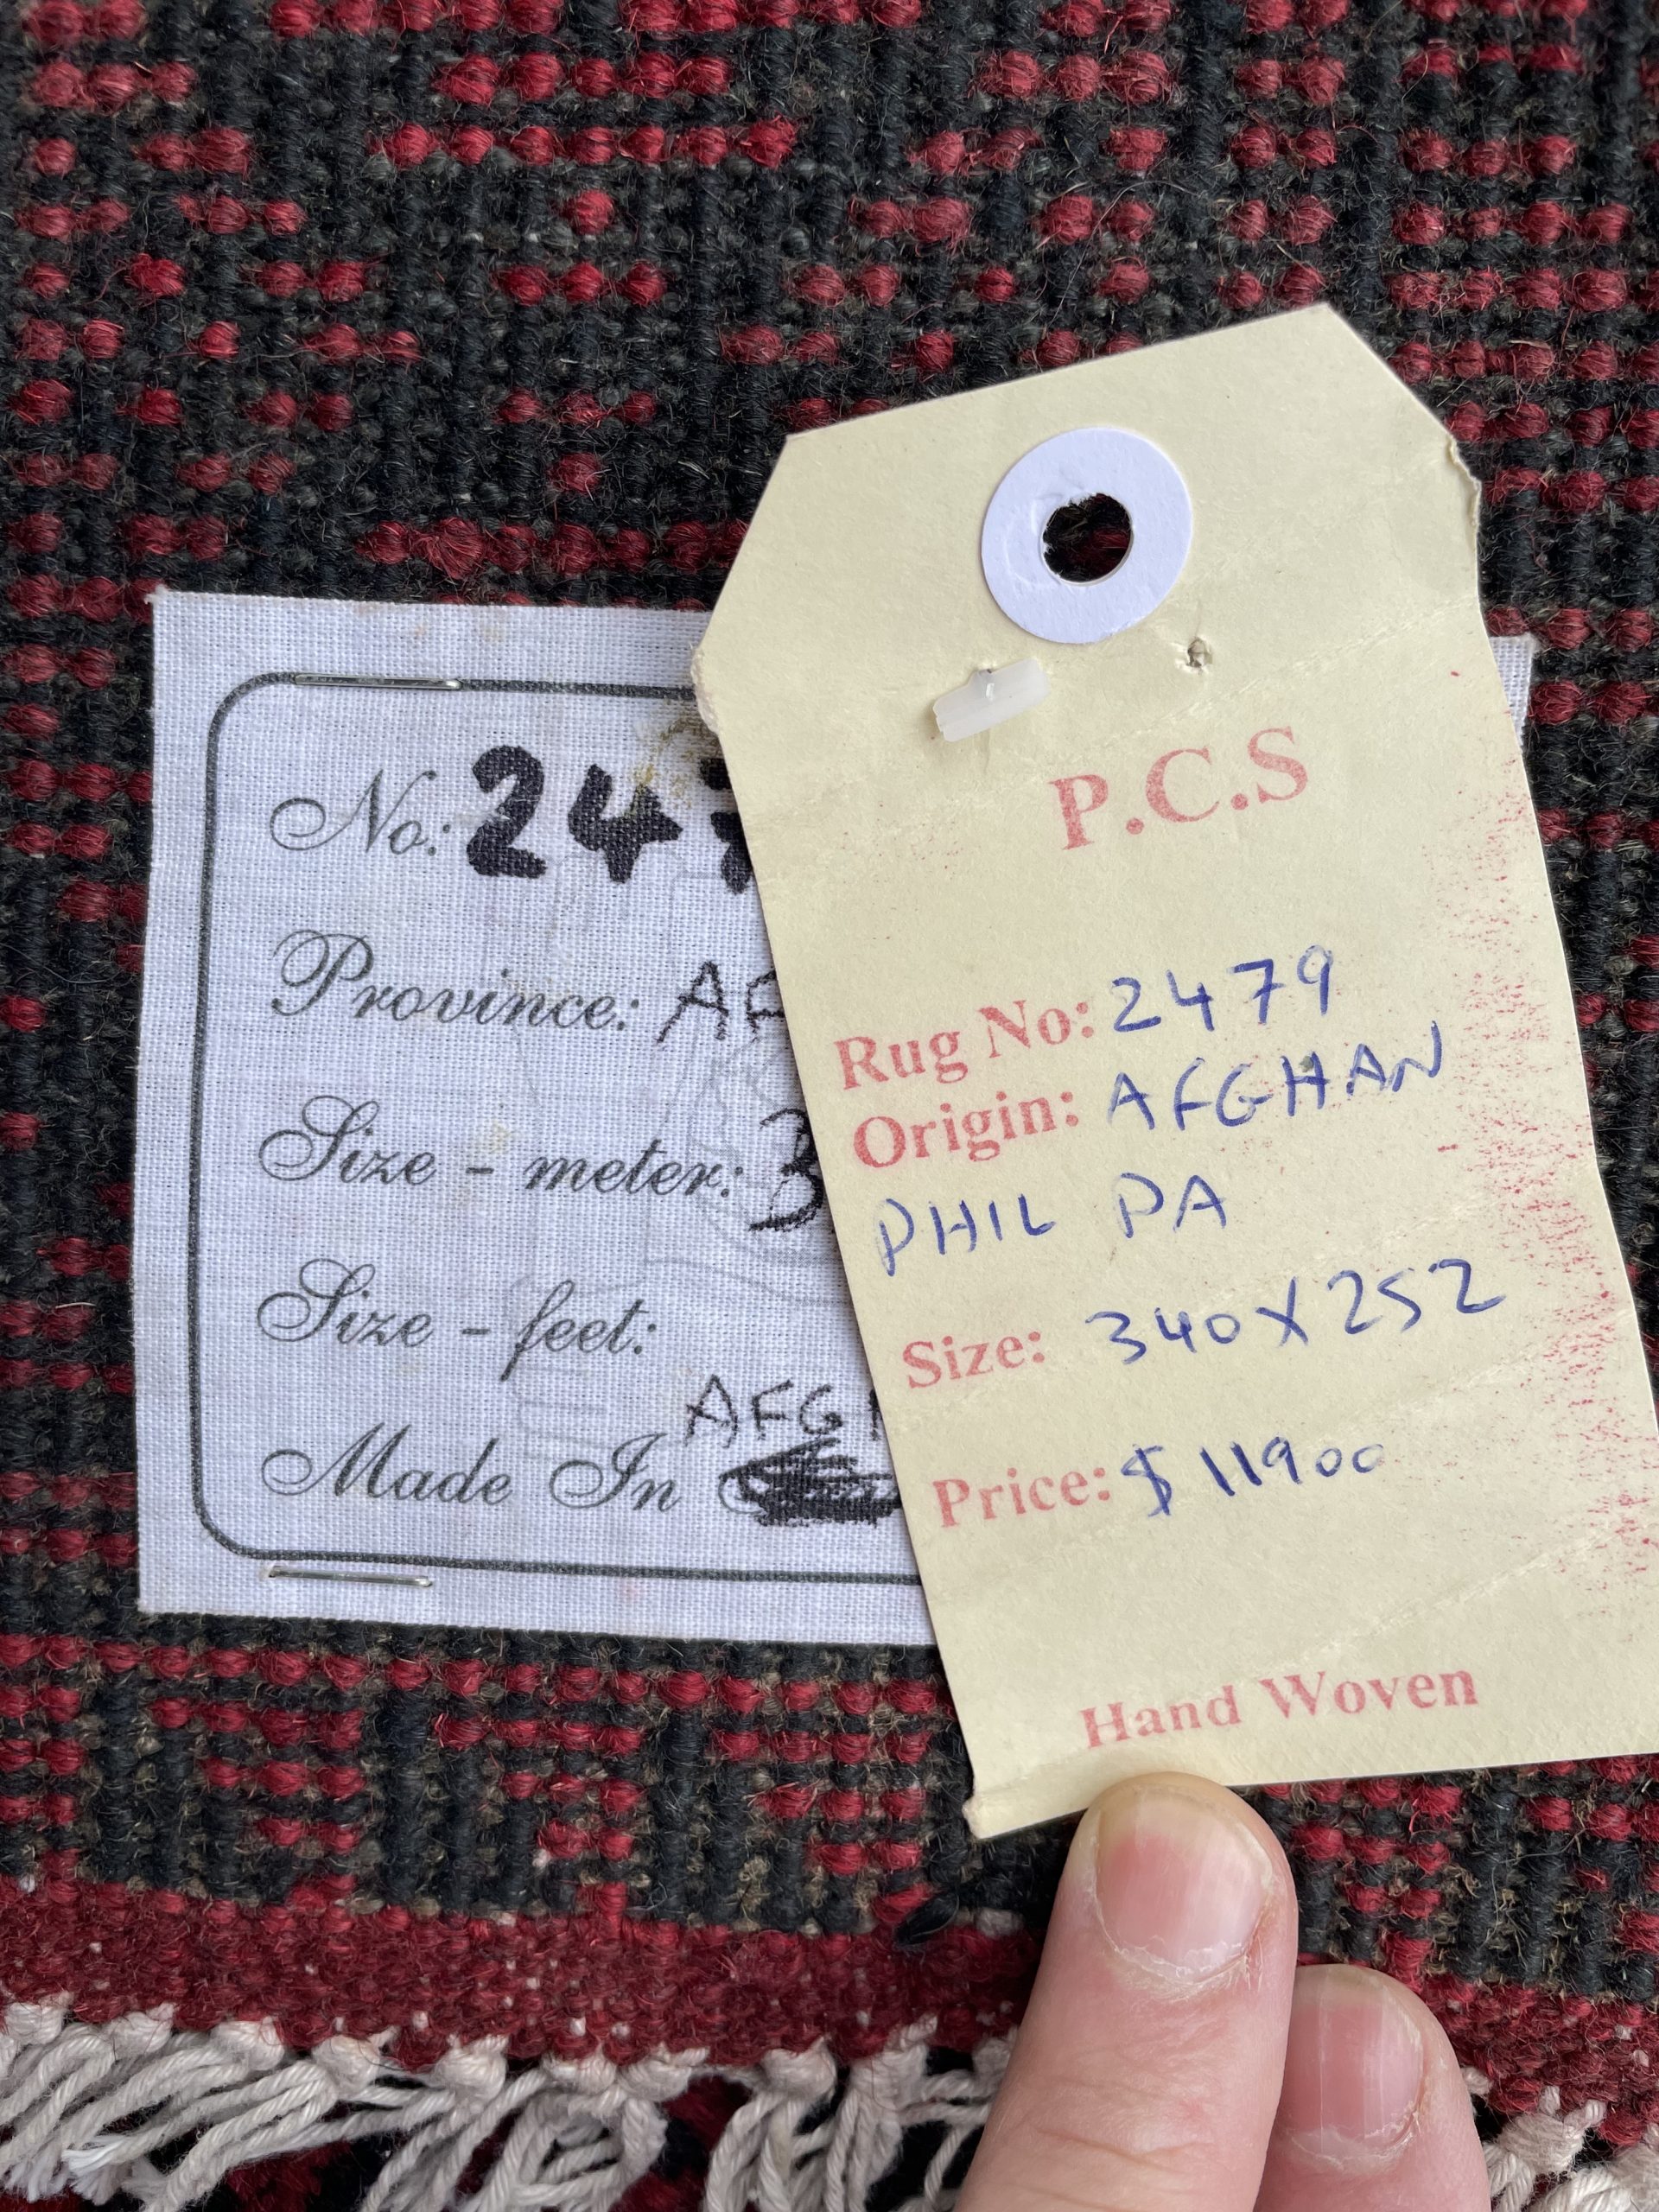 No: 247
Province: AF
Size - meter: 3
Size - feet:
AFG
Made In
P.C.S
Rug No: 2479
Origin: AFGHAN
PHIL PA
Size: 340X252
Price: $ 11900
Hand Woven